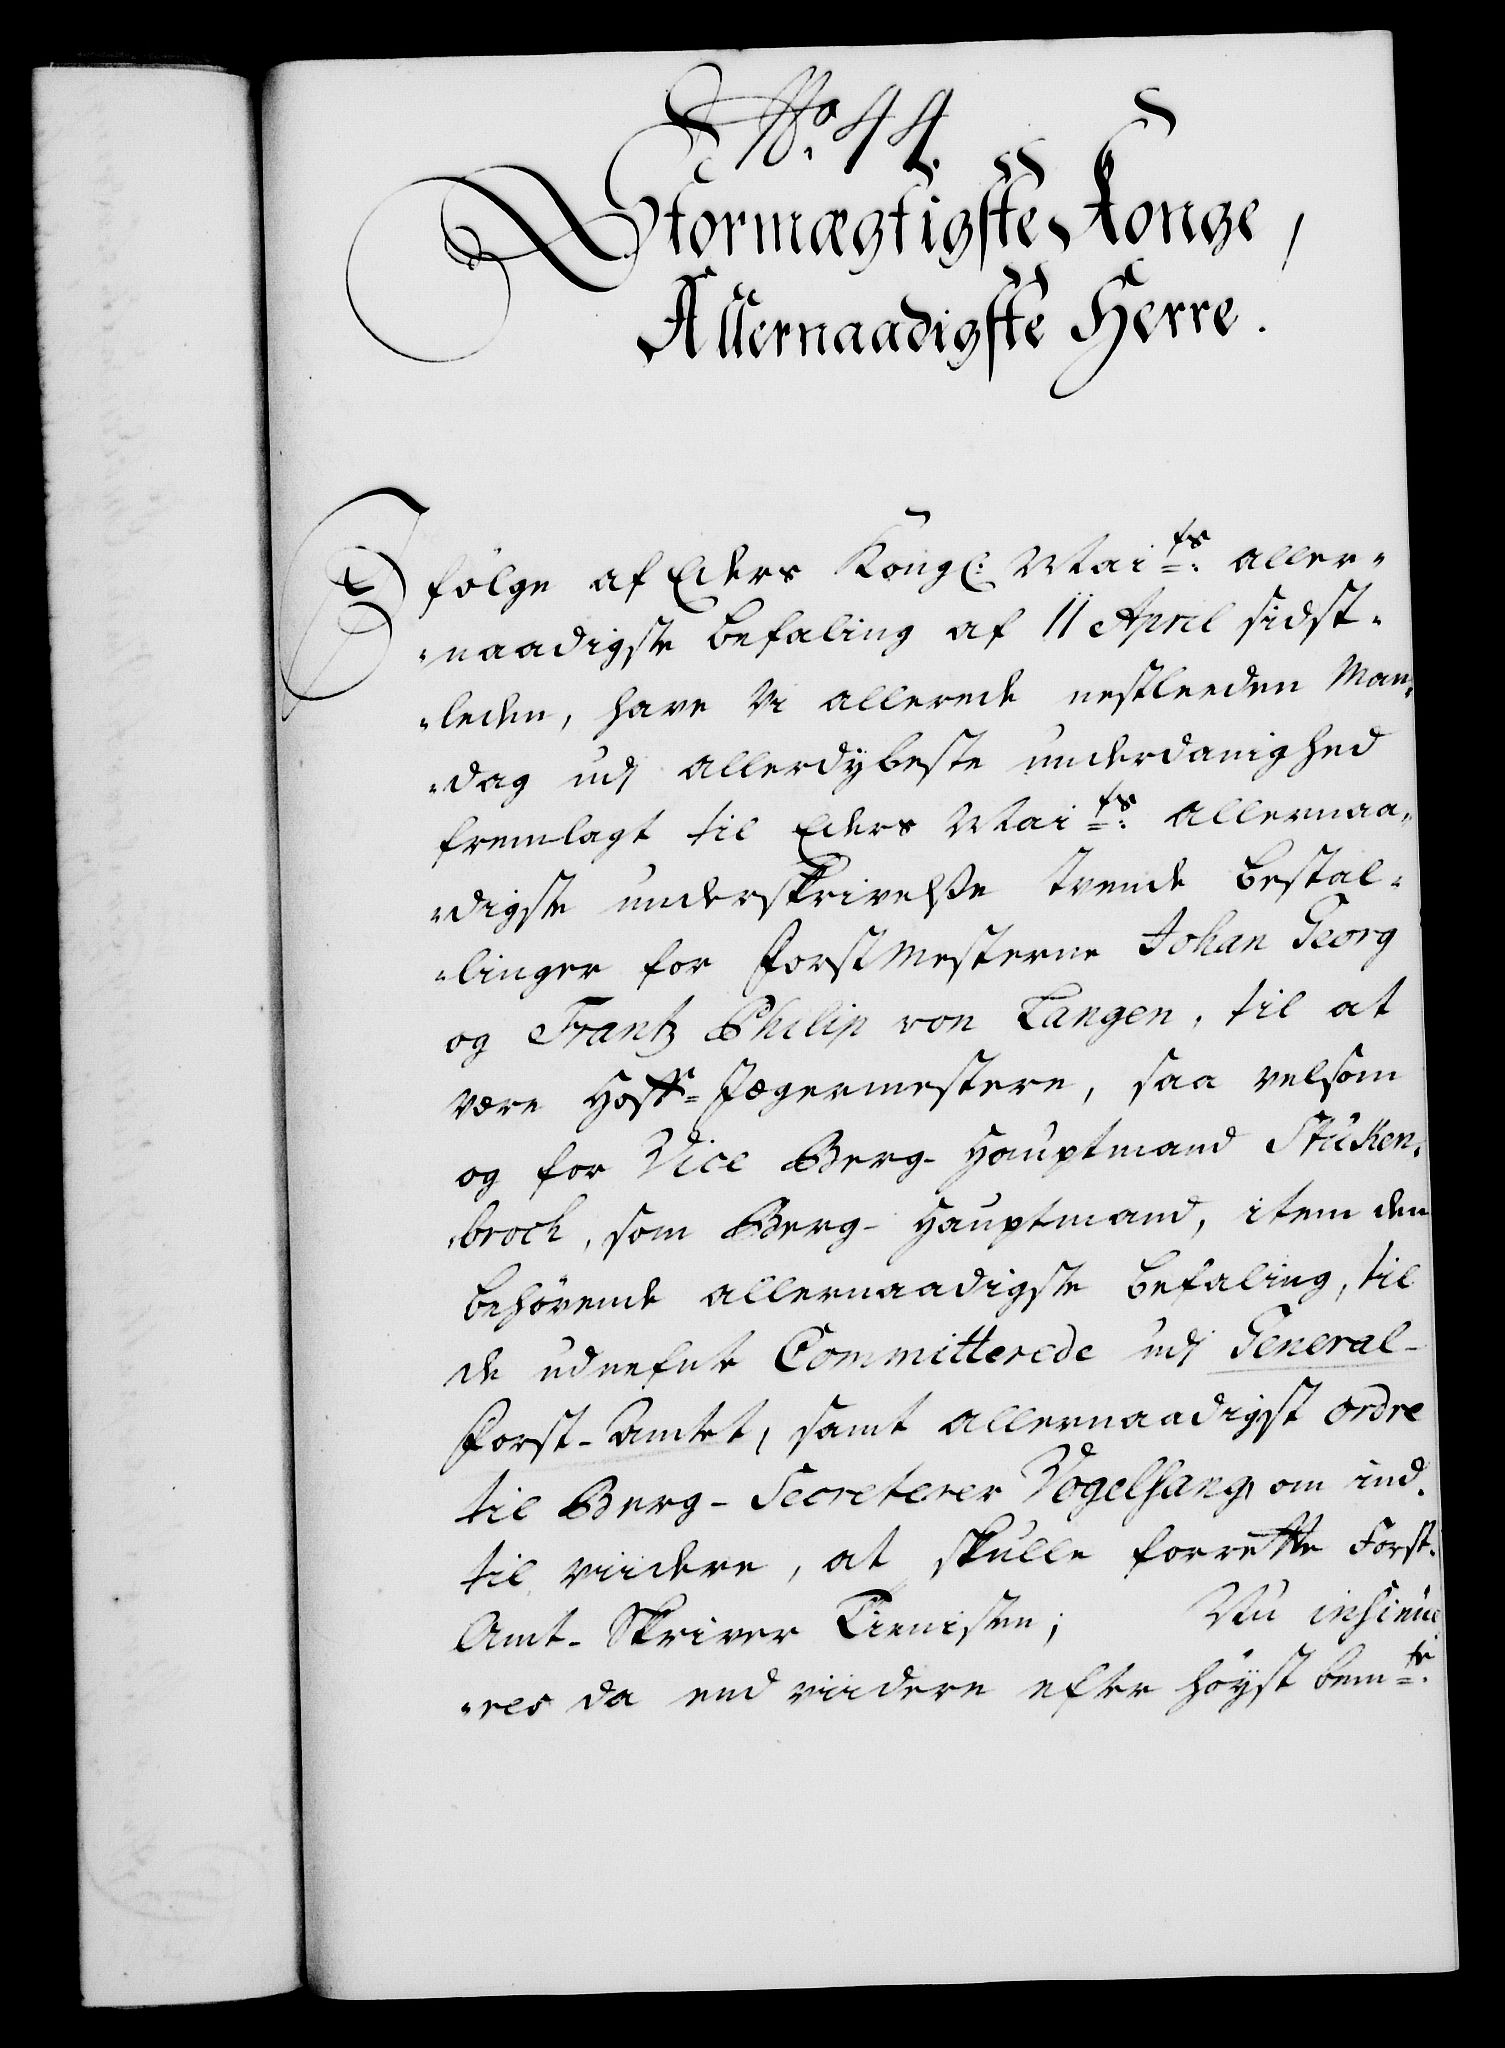 No. 44.
Stormægtigste Konge,
Allernaadigste Herre.
I følge af Eders Kongl: Maits. aller-
naadigste befaling af 11 April sidst-
leden, have Vi allerede nestleeden Man-
dag udj allerdybeste underdanighed
fremlagt til Eders Maits. allernaa-
digste underskrivelße trende bestal-
linger for Forstmesterne Johan Georg
og Frantz Philip von Langen, til at
være Hoff-Jægermestere, saa velsom
og for Vice Berg-Hauptmand Stuken-
brock, som Berg-Hauptmand, item den
behørende allernaadigste befaling, til
de udnefnte Committerede udj General-
Forst-Amtet, samt allernaadigst ordre
til Berg-Secreterer Vogelsang, om ind-
til viidere, at skulle forrette Forst-
Amt-Skriver Tienisten; Nu insinue-
res da end viidere efter høyst bemte.